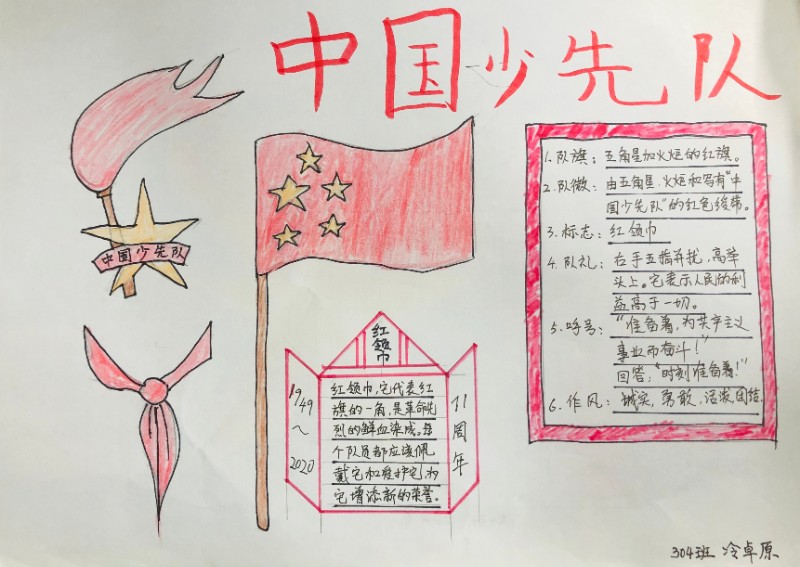 中国少先队
中国少先队
1.队旗：五角星加火炬的红旗。
2.队徽：由五角星，火炬和写有"中
国少先队"的红色绶带。
3.标志：红领巾
4.队礼：右手五指并拢，高举
头上。它表示人民的利
益高于一切。
5.呼号："准备着，为共产主义
事业而奋斗！"
回答："时刻准备着！"
6.作风：诚实，勇敢，活泼，团结
红领巾
1949～2020
红领巾，它代表红
旗的一角，是革命先
烈的鲜血染成。每
个队员都应该佩
戴它和维护它，为
它增添新的荣誉。
71周年
304班 冷卓原